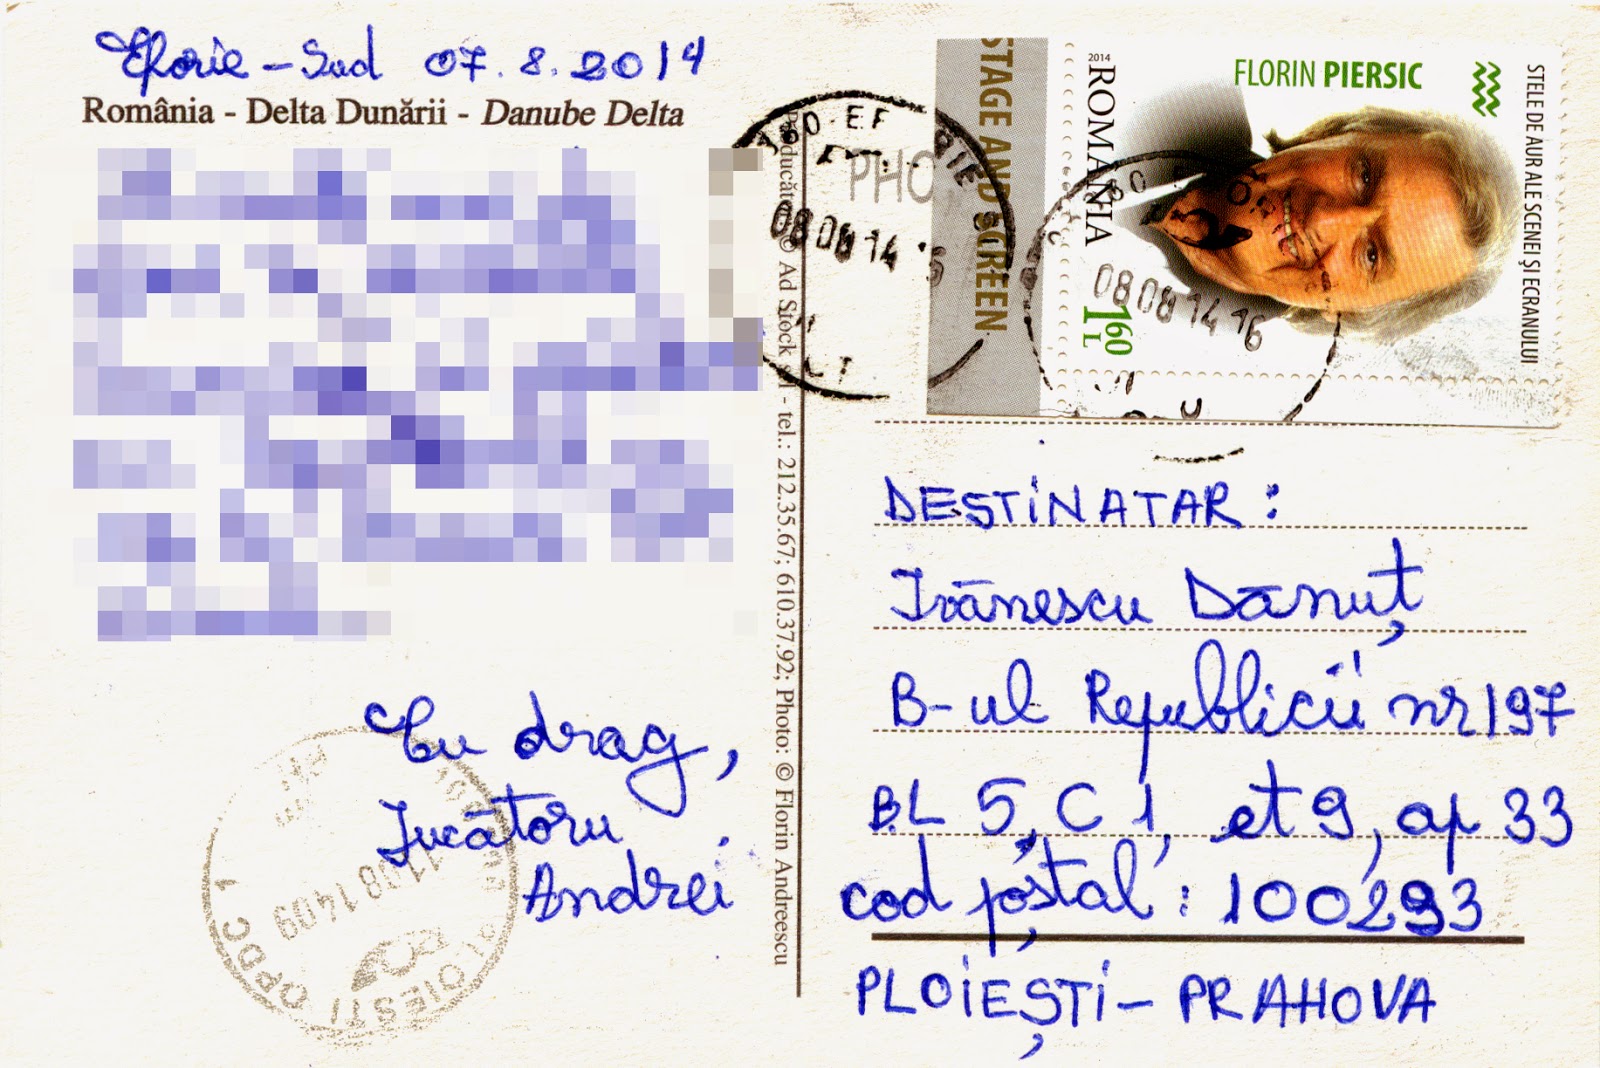 Eforie - Sud 07. 8. 2014
România - Delta Dunării - Danube Delta
Cu drag,
Jucătoru
Andrei
© Ad Stock
- tel.: 212.35.67; 610.37.92; Photo: © Florin Andreescu
STAGE AND SCREEN
2014
ROMÂNIA
FLORIN PIERSIC
STELE DE AUR ALE SCENEI ŞI ECRANULUI
1L 60
08 08 14
08 08 14 16
DESTINATAR:
Ivănescu Dănuț
B-ul Republicii nr 197
BL 5, C 1, et 9, ap 33
cod poștal: 100293
PLOIEȘTI - PRAHOVA
11 08 14 09
PLOIESTI OPDC 1